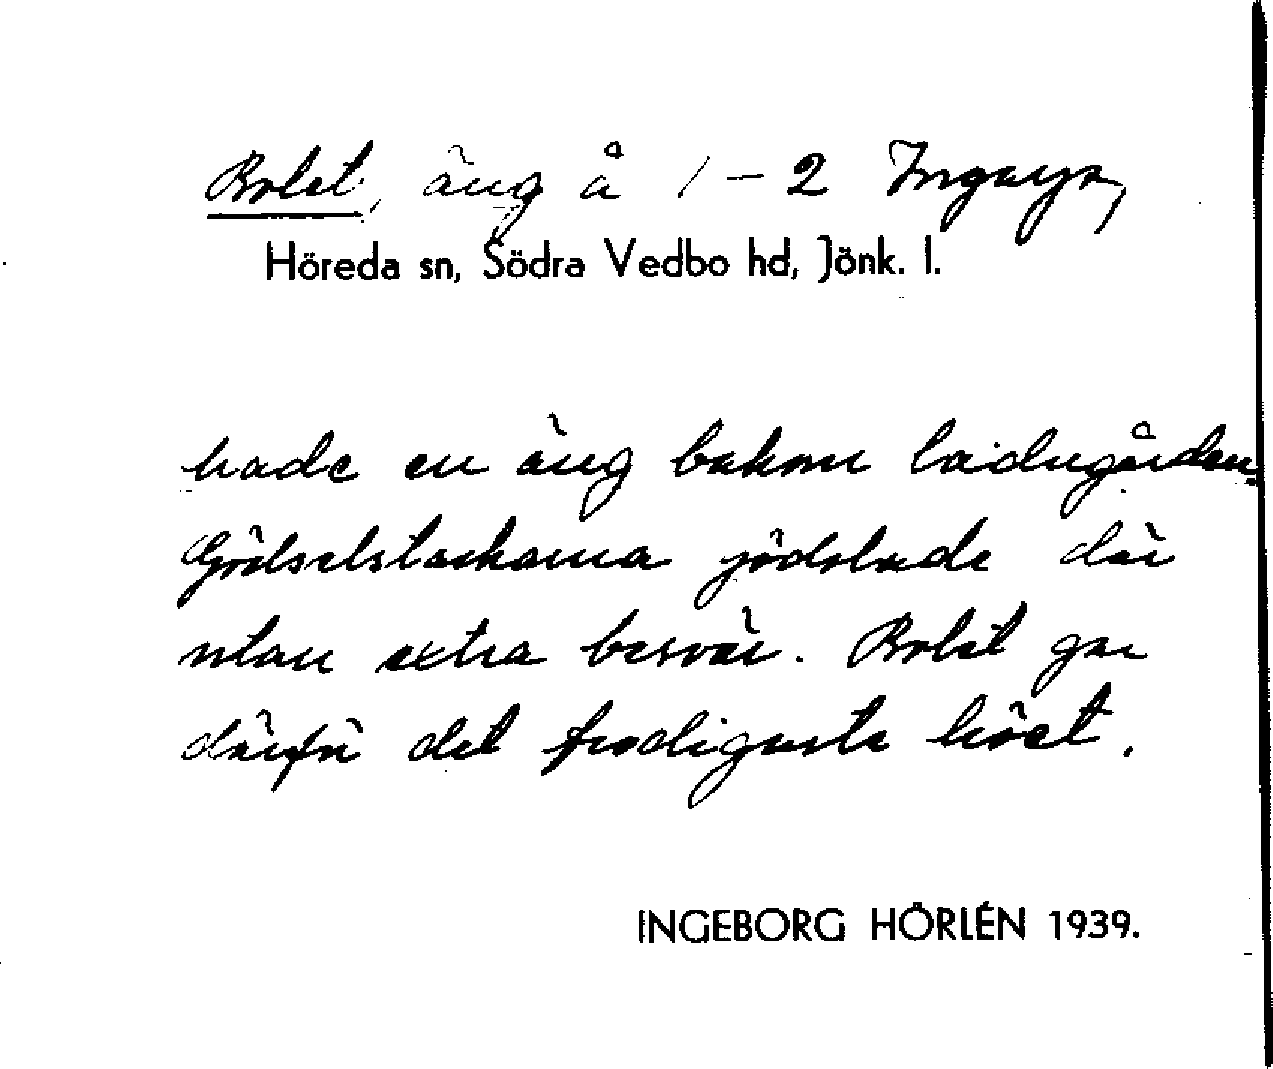 Bolet, äng å 1-2 Ingarp,
Höreda sn, Södra Vedbo hd, Jönk. l.
hade en äng bakom ladugården.
Gödselstackarna gödslade där
utan extra besvär. Bolet gav
därför det frodigaste höet.
INGEBORG HÖRLÉN 1939.